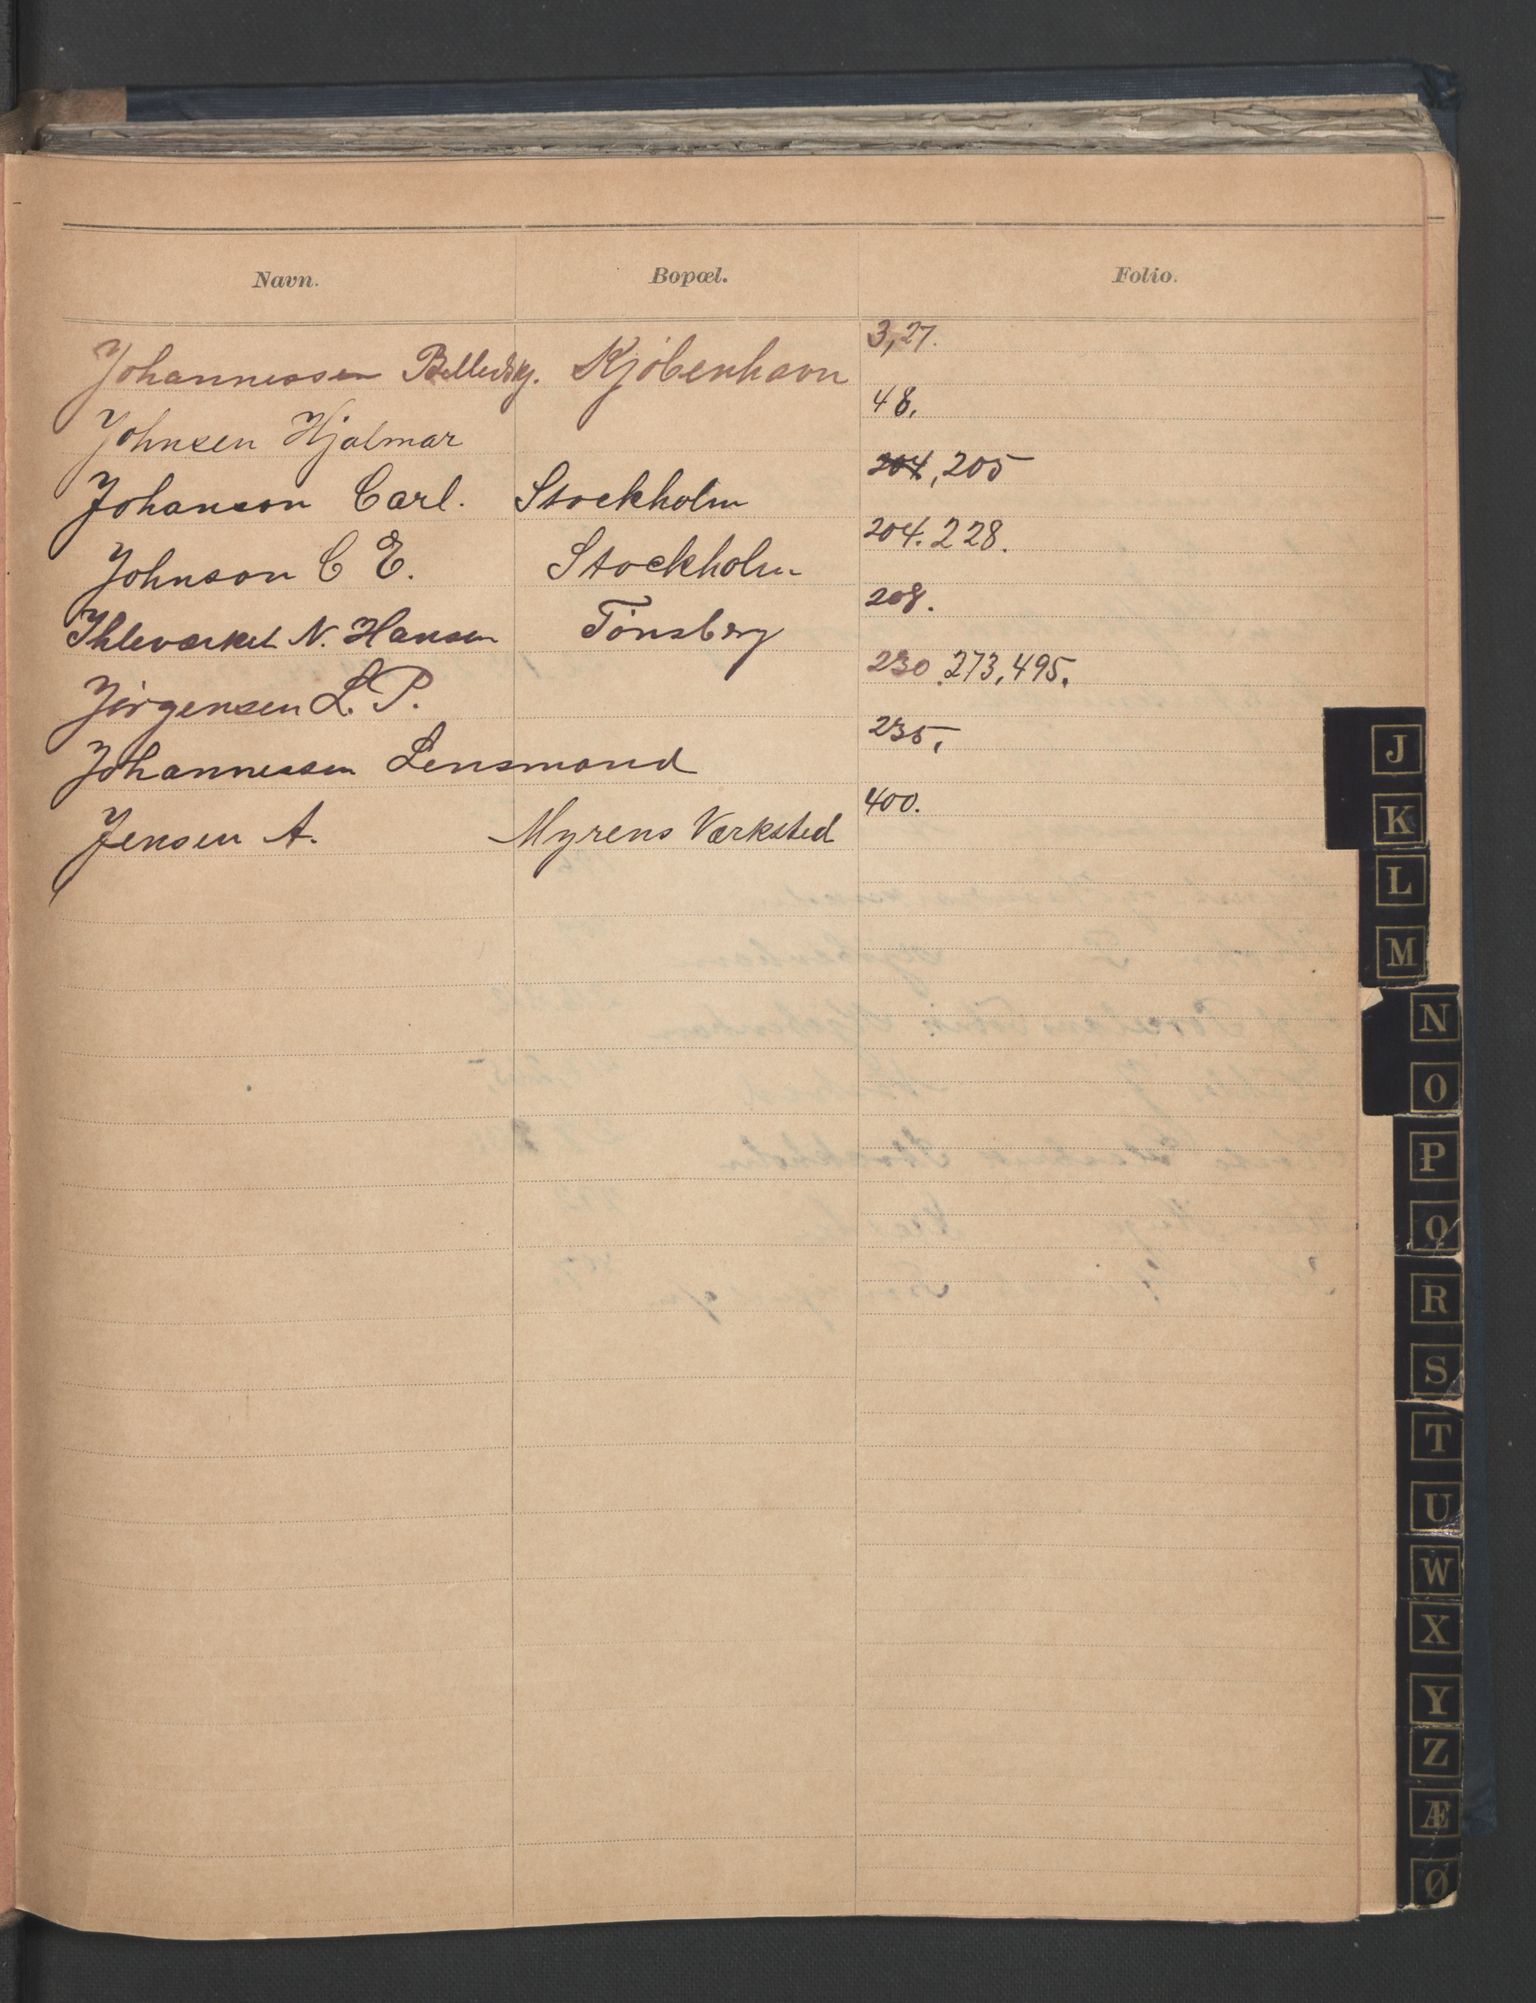 Navn. Bopæl. Folio.
Johannessen Billedhg. Kjöbenhavn 3,27.
Johnsen Hjalmar 48.
Johanson Carl. Stockholm 204, 205
Johnson C E. Stockholm 204. 228.
Ihleværket N. Hansen Tönsberg 208.
Jörgensen L. P. 230. 273, 495.
Johannessen Lensmand 235,
Jensen A. Myrens Værksted 400.
J
K
L
M
N
O
P
Q
R
S
T
U
W
X
Y
Z
Æ
Ø